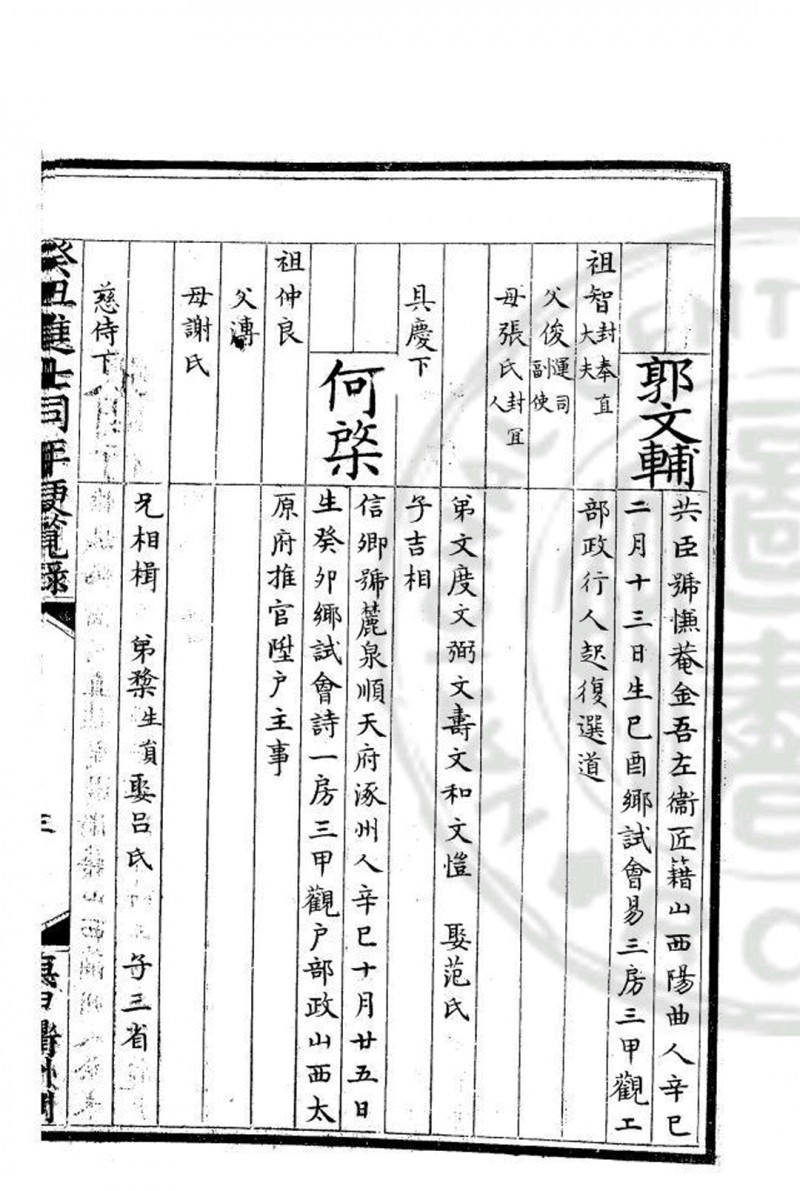 郭文輔
共臣號憮菴金吾左衞匠籍山西陽曲人辛巳
二月十三日生己酉鄉試會易三房三甲觀工
部政行人起復選道
祖智封奉直大夫
父俊運司副使
母張氏封宜人
具慶下
弟文度文弼文壽文和文愷 娶范氏
子吉相
何棨
信卿號麓泉順天府涿州人辛巳十月廿五日
生癸卯鄉試會詩一房三甲觀戶部政山西太
原府推官陞戶主事
祖仲良
父漙
母謝氏
慈侍下
兄相楫 弟棨生員娶呂氏 子三省
癸丑進士同年便覽錄
三